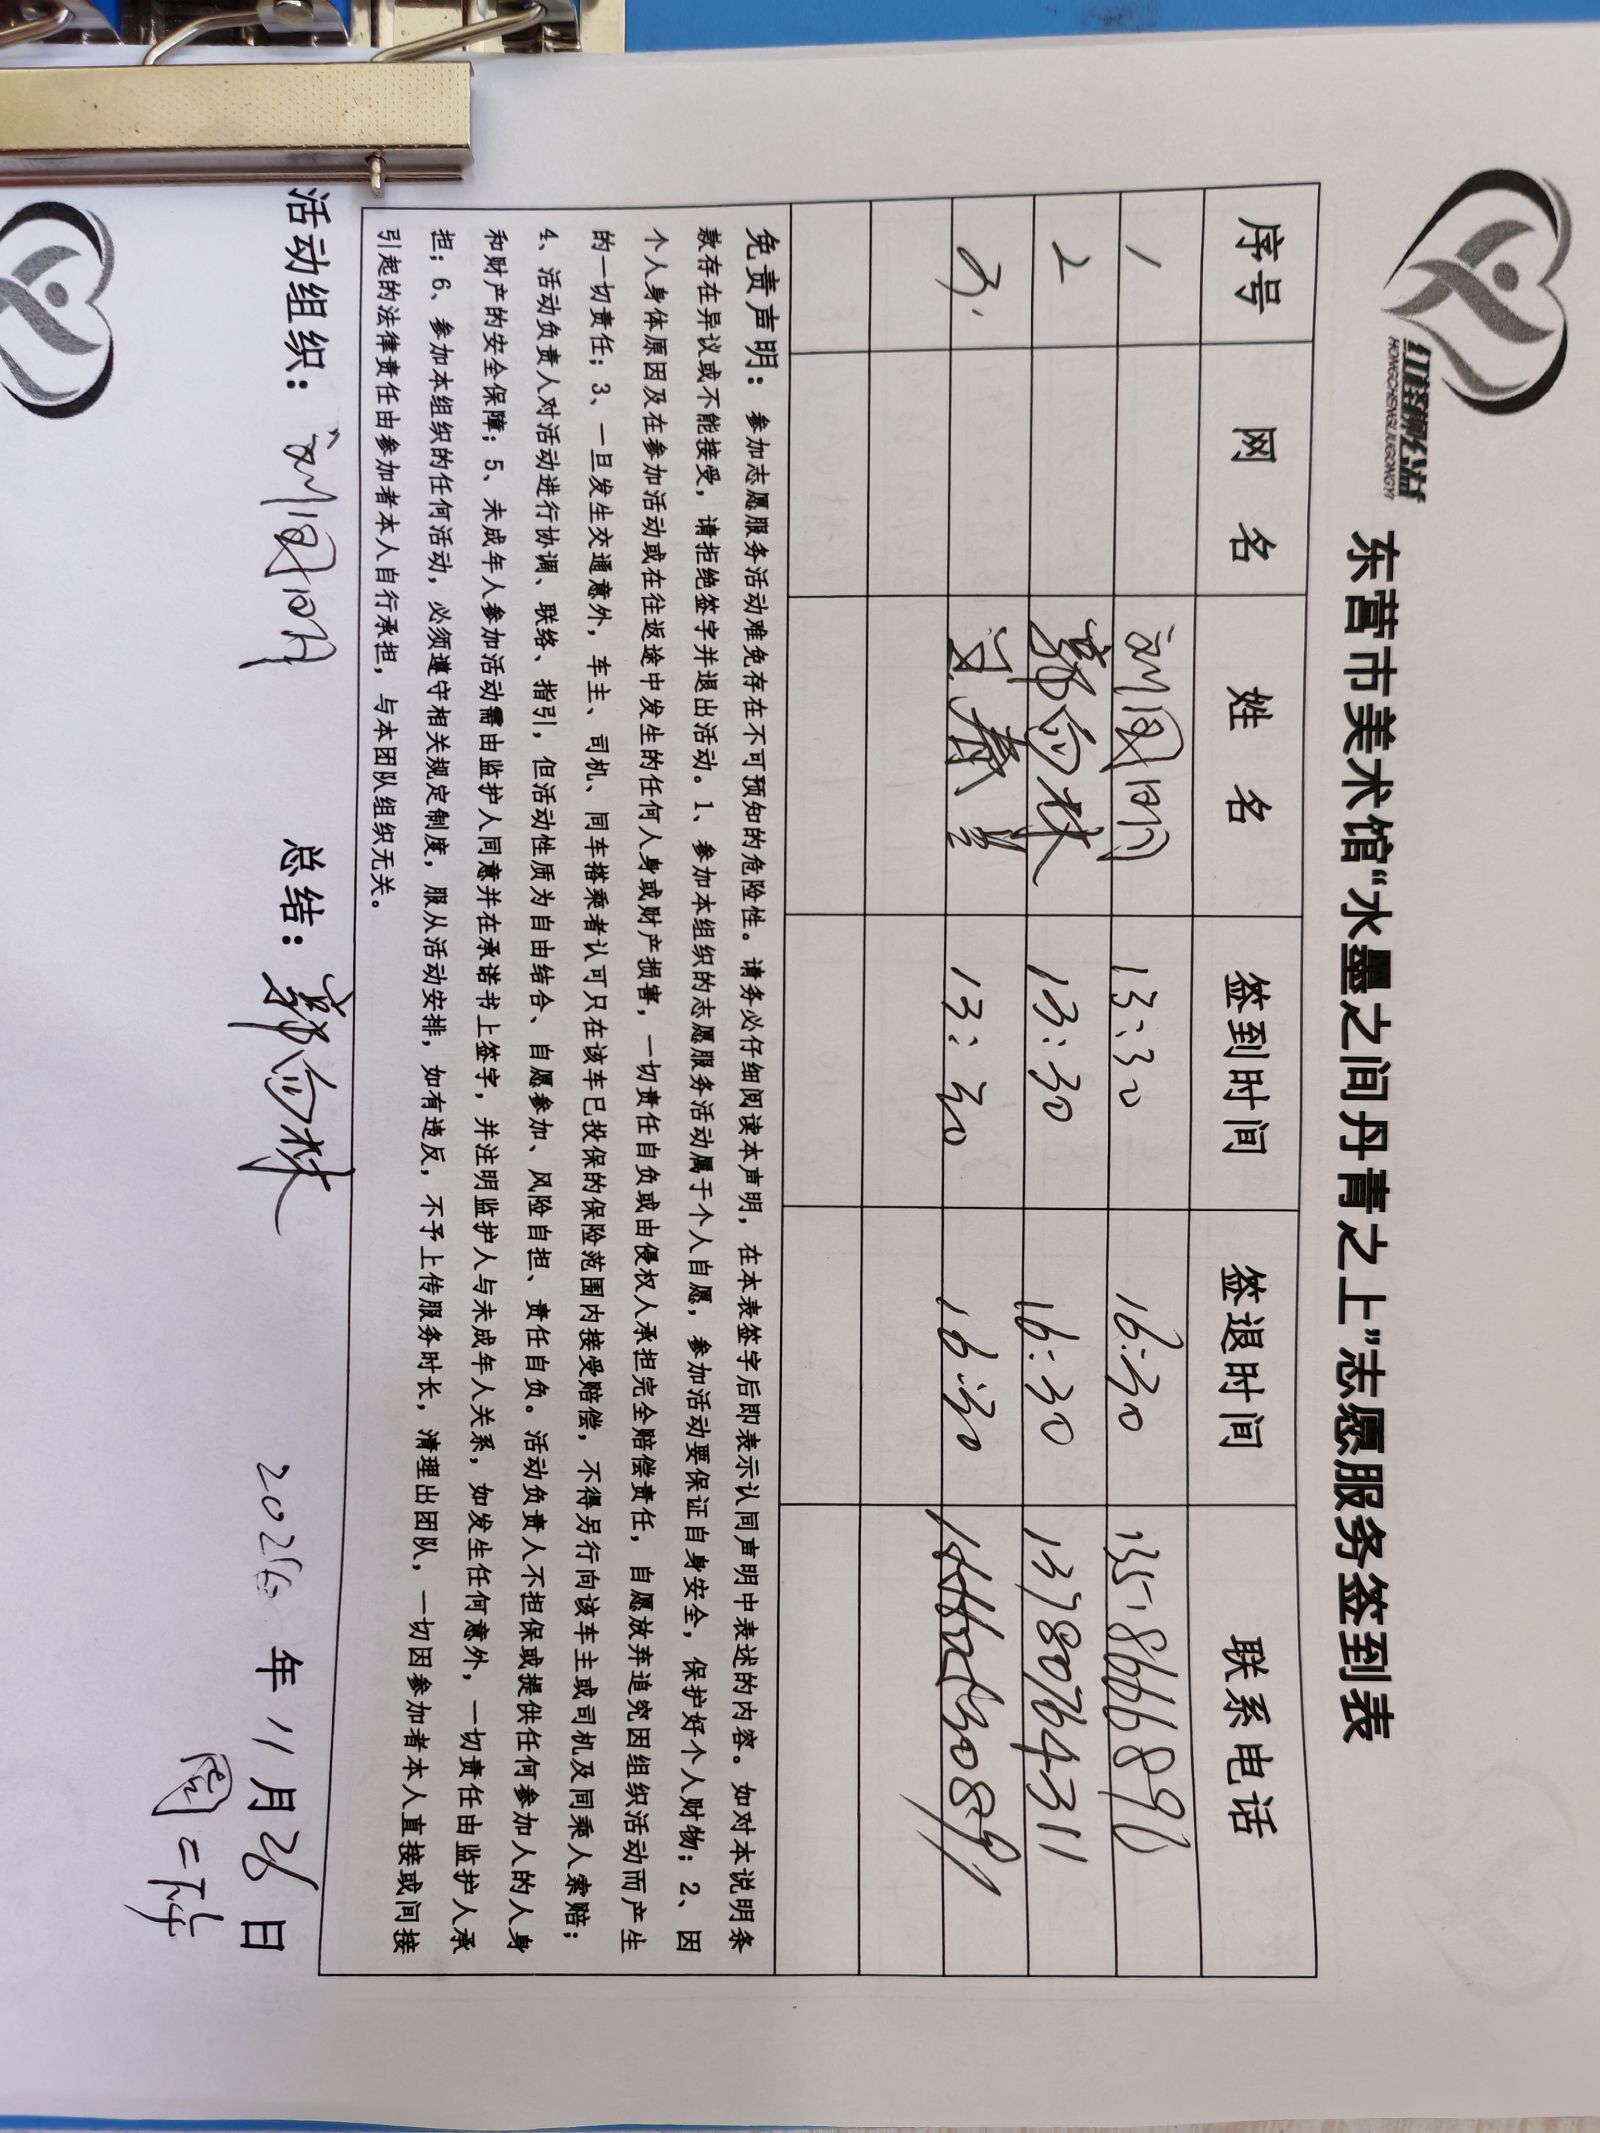 HONGCHENGLIUGONGYI
东营市美术馆“水墨之间丹青之上”志愿服务签到表
序号 网名 姓名 签到时间 签退时间 联系电话
1 13:30 16:30
2 13:30 16:30 13780764311
3. 13:30 16:30
免责声明：参加志愿服务活动难免存在不可预知的危险性。请务必仔细阅读本声明，在本表签字后即表示认同声明中表述的内容。如对本说明条
款存在异议或不能接受，请拒绝签字并退出活动。1、参加本组织的志愿服务活动属于个人自愿，参加活动要保证自身安全，保护好个人财物；2、因
个人身体原因及在参加活动或在往返途中发生的任何人身或财产损害，一切责任自负或由侵权人承担完全赔偿责任，自愿放弃追究因组织活动而产生
的一切责任；3、一旦发生交通意外，车主、司机、同车搭乘者认可只在该车已投保的保险范围内接受赔偿，不得另行向该车主或司机及同乘人索赔；
4、活动负责人对活动进行协调、联络、指引，但活动性质为自由结合、自愿参加、风险自担、责任自负。活动负责人不担保或提供任何参加人的人身
和财产的安全保障；5、未成年人参加活动需由监护人同意并在承诺书上签字，并注明监护人与未成年人关系，如发生任何意外，一切责任由监护人承
担；6、参加本组织的任何活动，必须遵守相关规定制度，服从活动安排，如有违反，不予上传服务时长，清理出团队，一切因参加者本人直接或间接
引起的法律责任由参加者本人自行承担，与本团队组织无关。
活动组织： 总结： 年 11月26日